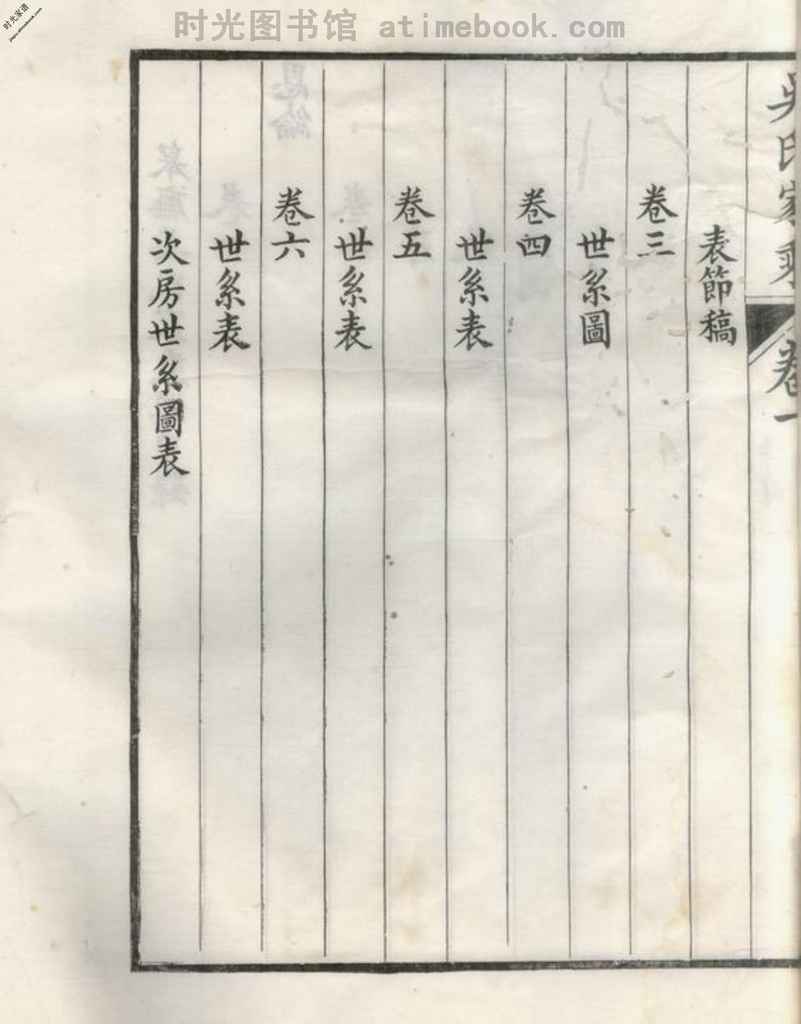 时光图书馆 atimebook.com
时光家谱
吳氏家乘
卷一
表節稿
卷三
世系圖
卷四
世系表
卷五
世系表
卷六
世系表
次房世系圖表